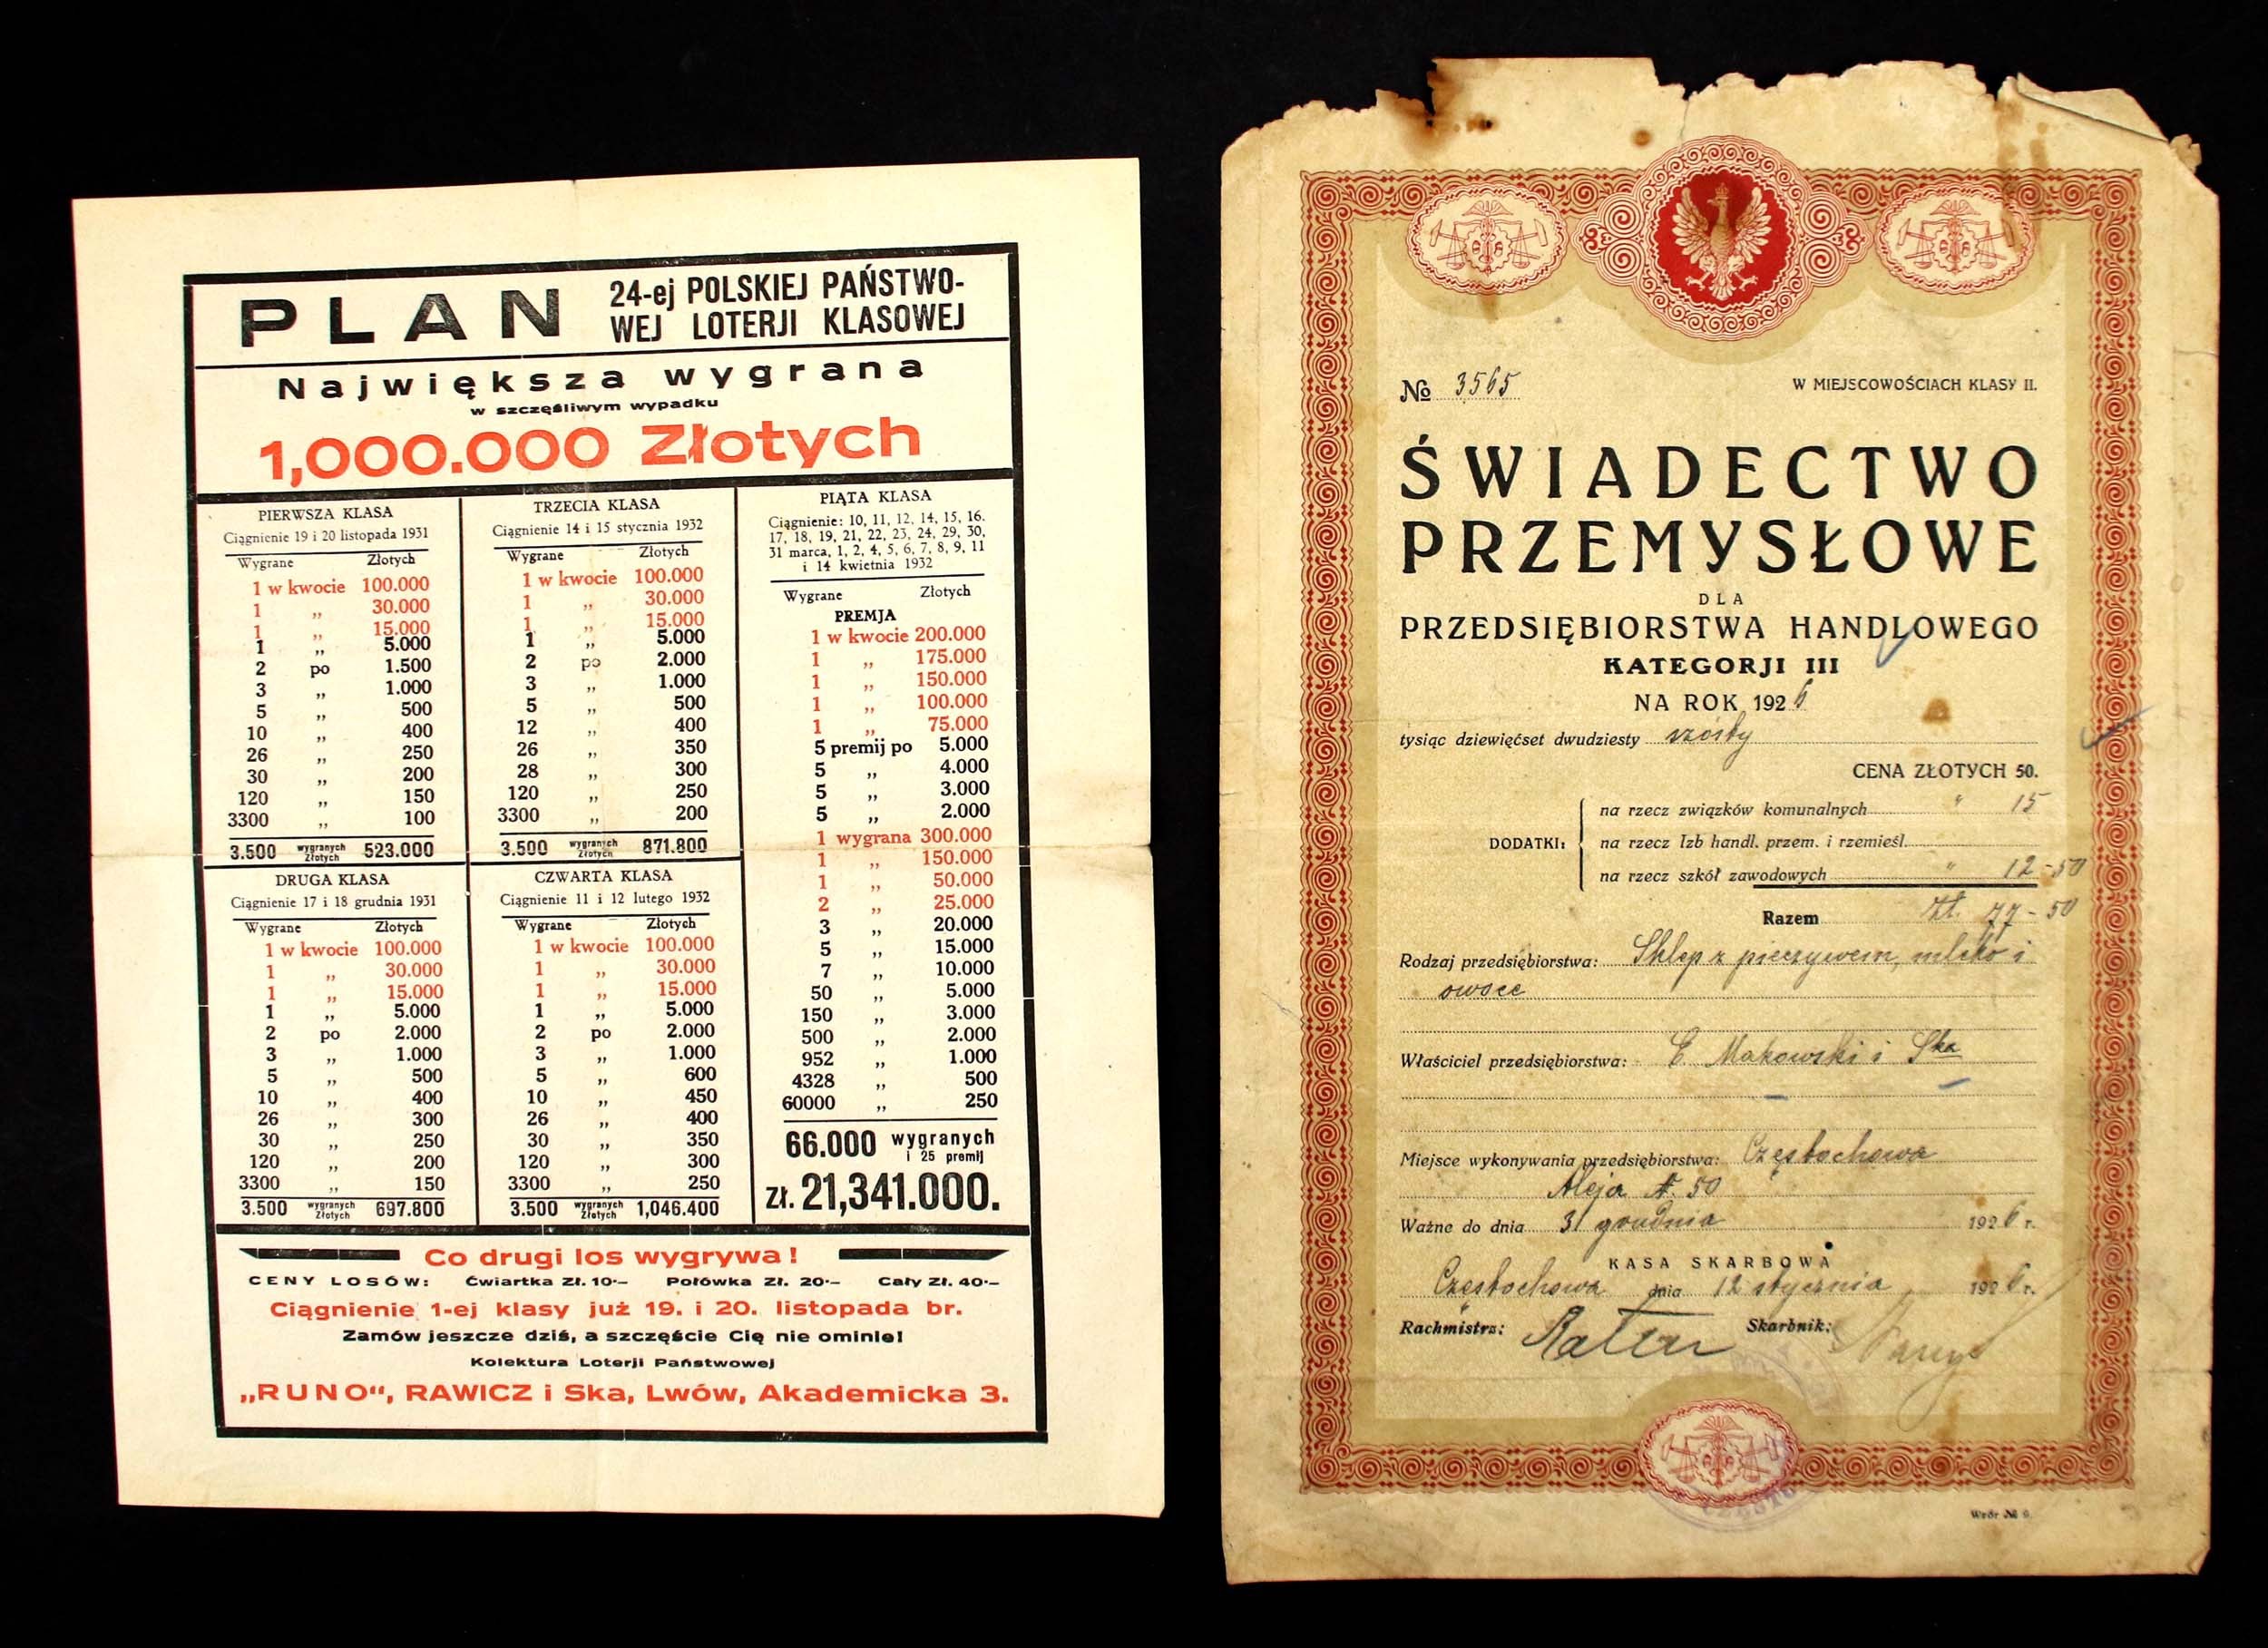 PLAN
24-ej POLSKIEJ PAŃSTWO-
WEJ LOTERJI KLASOWEJ
Największa wygrana
w szczęśliwym wypadku
1,000.000 Złotych
PIERWSZA KLASA
Ciągnienie 19 i 20 listopada 1931
Wygrane Złotych
1 w kwocie 100.000
1 „ 30.000
1 „ 15.000
1 „ 5.000
2 po 1.500
3 „ 1.000
5 „ 500
10 „ 400
26 „ 250
30 „ 200
120 „ 150
3300 „ 100
3.500 wygranych Złotych 523.000
DRUGA KLASA
Ciągnienie 17 i 18 grudnia 1931
Wygrane Złotych
1 w kwocie 100.000
1 „ 30.000
1 „ 15.000
1 „ 5.000
2 po 2.000
3 „ 1.000
5 „ 500
10 „ 400
26 „ 300
30 „ 250
120 „ 200
3300 „ 150
3.500 wygranych Złotych 697.800
TRZECIA KLASA
Ciągnienie 14 i 15 stycznia 1932
Wygrane Złotych
1 w kwocie 100.000
1 „ 30.000
1 „ 15.000
1 „ 5.000
2 po 2.000
3 „ 1.000
5 „ 500
12 „ 400
26 „ 350
28 „ 300
120 „ 250
3300 „ 200
3.500 wygranych Złotych 871.800
CZWARTA KLASA
Ciągnienie 11 i 12 lutego 1932
Wygrane Złotych
1 w kwocie 100.000
1 „ 30.000
1 „ 15.000
1 „ 5.000
2 po 2.000
3 „ 1.000
5 „ 600
10 „ 450
26 „ 400
30 „ 350
120 „ 300
3300 „ 250
3.500 wygranych Złotych 1,046.400
PIĄTA KLASA
Ciągnienie: 10, 11, 12, 14, 15, 16.
17, 18, 19, 21, 22, 23, 24, 29, 30,
31 marca, 1, 2, 4, 5, 6, 7, 8, 9, 11
i 14 kwietnia 1932
Wygrane Złotych
PREMJA
1 w kwocie 200.000
1 „ 175.000
1 „ 150.000
1 „ 100.000
1 „ 75.000
5 premij po 5.000
5 „ 4.000
5 „ 3.000
5 „ 2.000
1 wygrana 300.000
1 „ 150.000
1 „ 50.000
2 „ 25.000
3 „ 20.000
5 „ 15.000
7 „ 10.000
50 „ 5.000
150 „ 3.000
500 „ 2.000
952 „ 1.000
4328 „ 500
60000 „ 250
66.000 wygranych
i 25 premij
zł. 21,341.000.
Co drugi los wygrywa!
CENY LOSÓW: Ćwiartka Zł. 10·– Połówka Zł. 20·– Cały Zł. 40·–
Ciągnienie 1-ej klasy już 19. i 20. listopada br.
Zamów jeszcze dziś, a szczęście Cię nie ominie!
Kolektura Loterji Państwowej
„RUNO“, RAWICZ i Ska, Lwów, Akademicka 3.
№ 3565
W MIEJSCOWOŚCIACH KLASY II.
ŚWIADECTWO
PRZEMYSŁOWE
DLA
PRZEDSIĘBIORSTWA HANDLOWEGO
KATEGORJI III
NA ROK 1926
tysiąc dziewięćset dwudziesty szósty
CENA ZŁOTYCH 50.
DODATKI:
na rzecz związków komunalnych " 15
na rzecz Izb handl. przem. i rzemieśl.
na rzecz szkół zawodowych " 12-50
Razem Zł. 77-50
Rodzaj przedsiębiorstwa: Sklep z pieczywem, mleko i
owoce
Właściciel przedsiębiorstwa: E. Makowski i Ska
Miejsce wykonywania przedsiębiorstwa: Częstochowa
Aleja № 50
Ważne do dnia 31 grudnia 1926 r.
KASA SKARBOWA
Częstochowa dnia 12 stycznia 1926 r.
Rachmistrz: Skarbnik:
Wzór № 9.